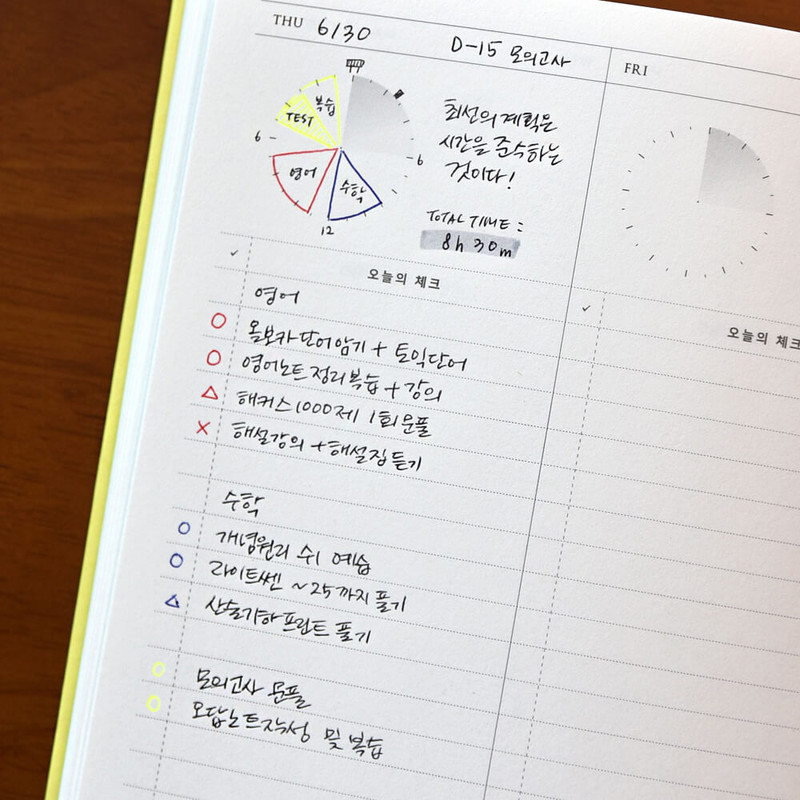 THU 6/30
D-15 모의고사
FRI
복습
TEST
6
영어
수학
12
6
최선의 계획은
시간을 준수하는
것이다!
TOTAL TIME :
8h 30m
✓ 오늘의 체크
영어
○ 올보카 단어암기 + 토익단어
○ 영어노트정리 복습 + 강의
△ 해커스 1000제 1회 문풀
× 해설강의 + 해설집 듣기
수학
○ 개념원리 수1 예습
○ 라이트쎈 ~25까지 풀기
△ 산술기하 프린트 풀기
○ 모의고사 문풀
○ 오답노트작성 및 복습
✓ 오늘의 체크